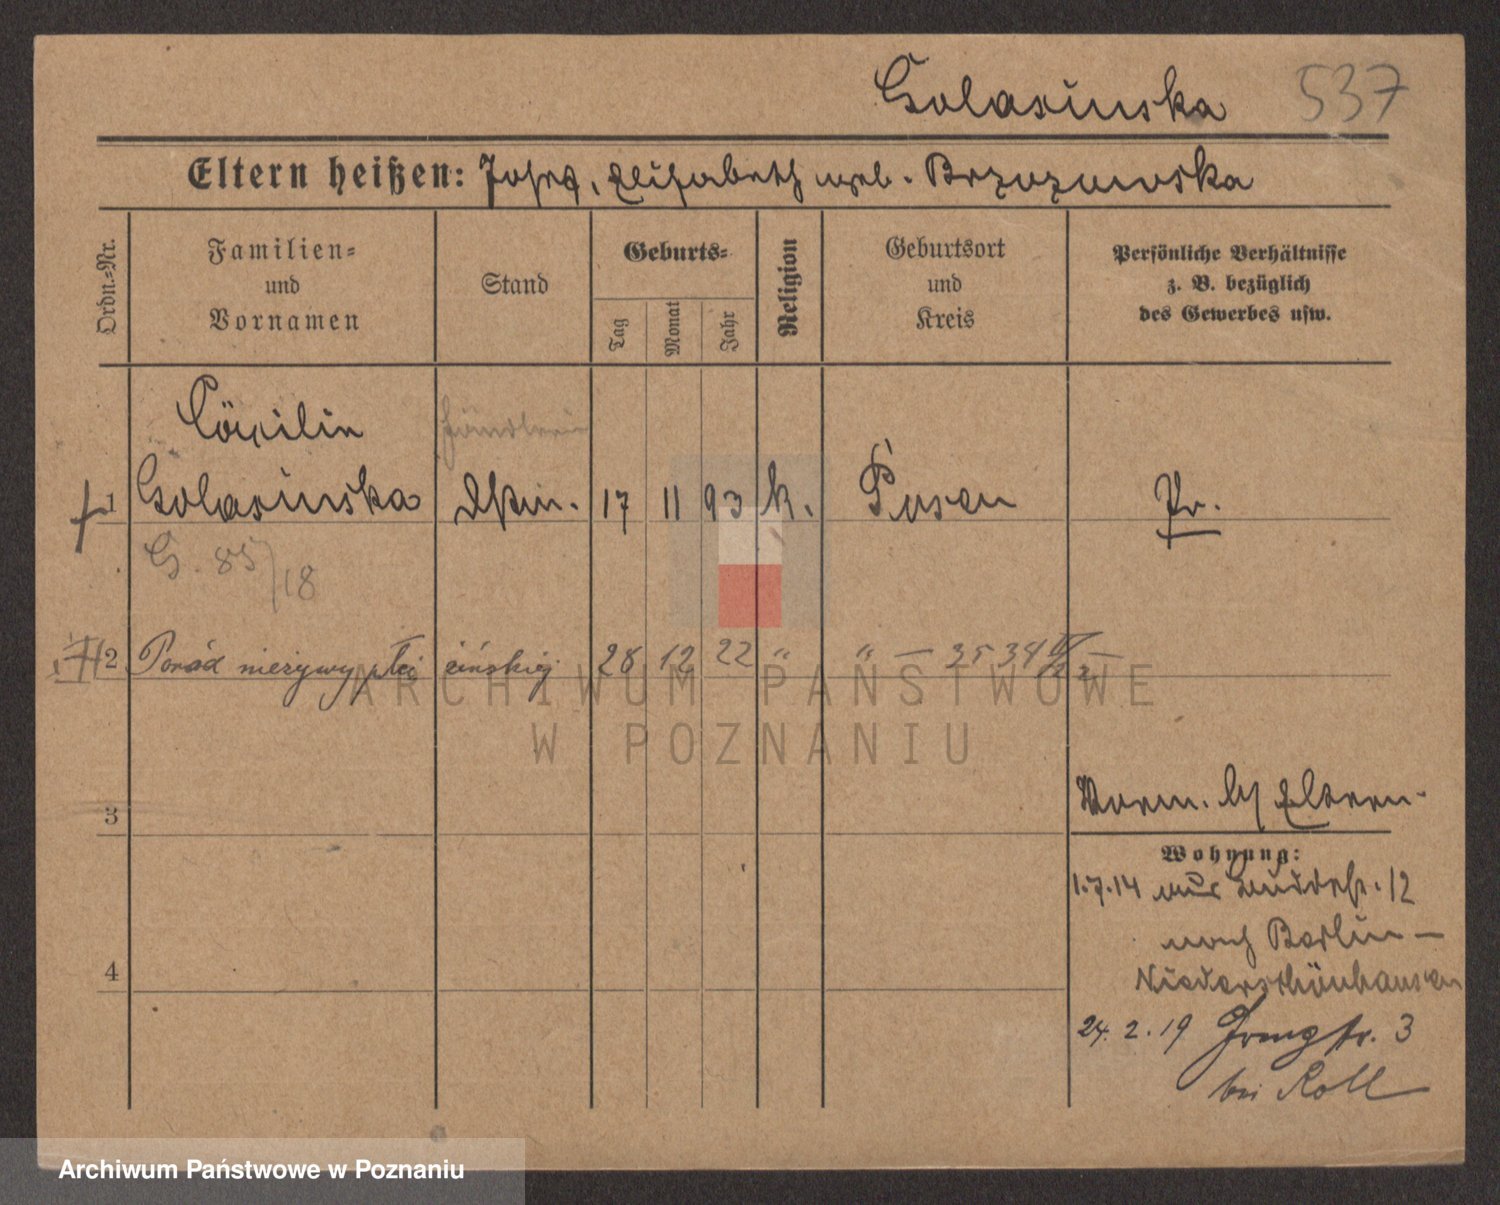 Golasinska 537
Eltern heißen: Josef, Elisabeth geb. Brzozowska
Ordn.-Nr.
Familien-
und
Vornamen
Stand
Geburts-
Tag
Monat
Jahr
Religion
Geburtsort
und
Kreis
Persönliche Verhältnisse
z. B. bezüglich
des Gewerbes usw.
Cäcilie Händlerin
1 Golasinska 17 11 93 k. Posen Pr.
G. 85/18
2 Poród nieżywy płci żeńskiej 28 12 22 " " — 3534
3
Vorm. bei Eltern.
Wohnung:
1.7.14 aus 12
nach Berlin —
4
Niederschönhausen
24.2.19 3
bei Roll
ARCHIWUM PAŃSTWOWE
W POZNANIU
Archiwum Państwowe w Poznaniu